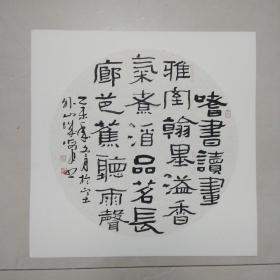 嗜書讀畫
雅閣翰墨溢香
氣煮酒品茗長
廊芭蕉聽雨聲
乙未年五月於